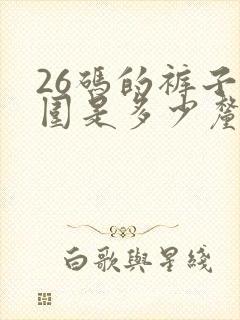 26碼的裤子
围是多少釐
白歌與星綫